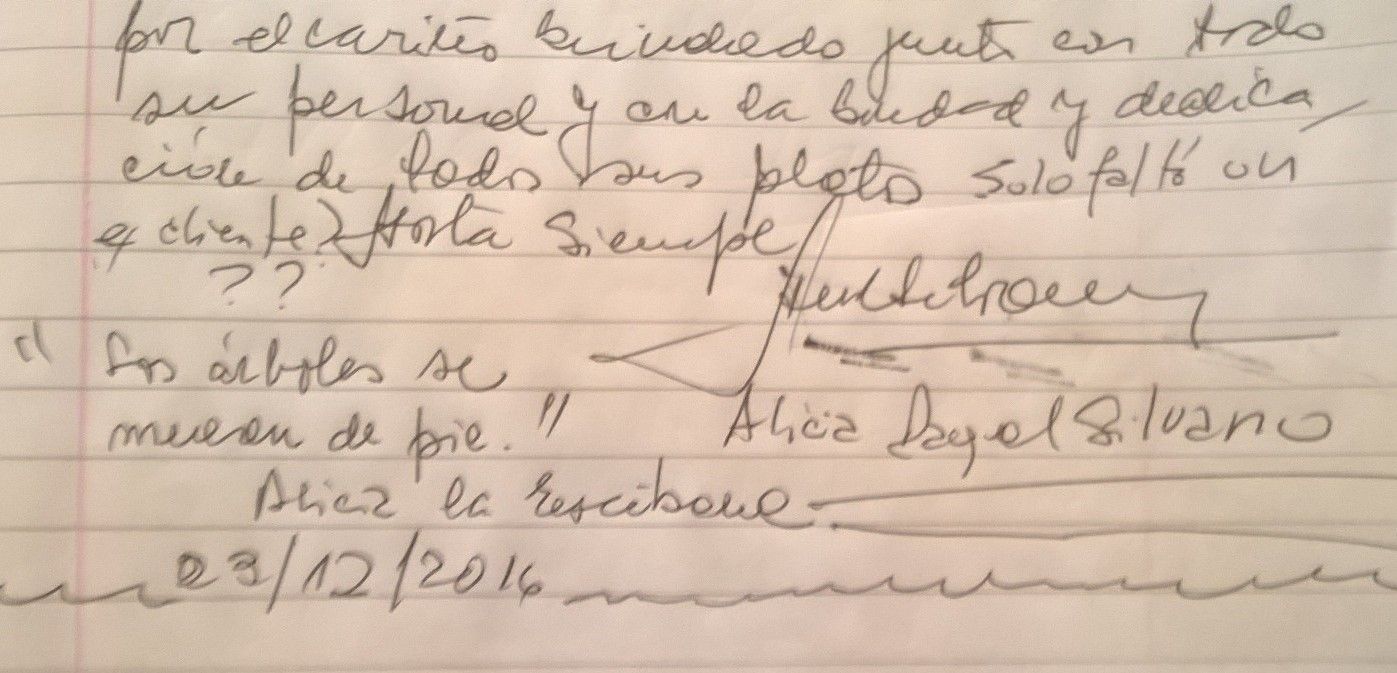 por el cariño brindado junto con todo
su personal y en la bondad y dedica
ción de todos sus platos solo faltó un
cliente? Hasta siempre
??
"Los árboles se
mueren de pie."
Alicia Dagel Silvano
Alicia la Escribana
23/12/2016